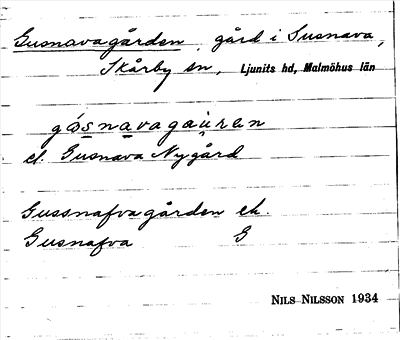 Gusnavagården, gård i Gusnava,
Skårby sn, Ljunits hd, Malmöhus län
gǿsnavagaůrən
el. Gusnava Nygård
Gussnafvagården ek.
Gusnafva G
NILS NILSSON 1934